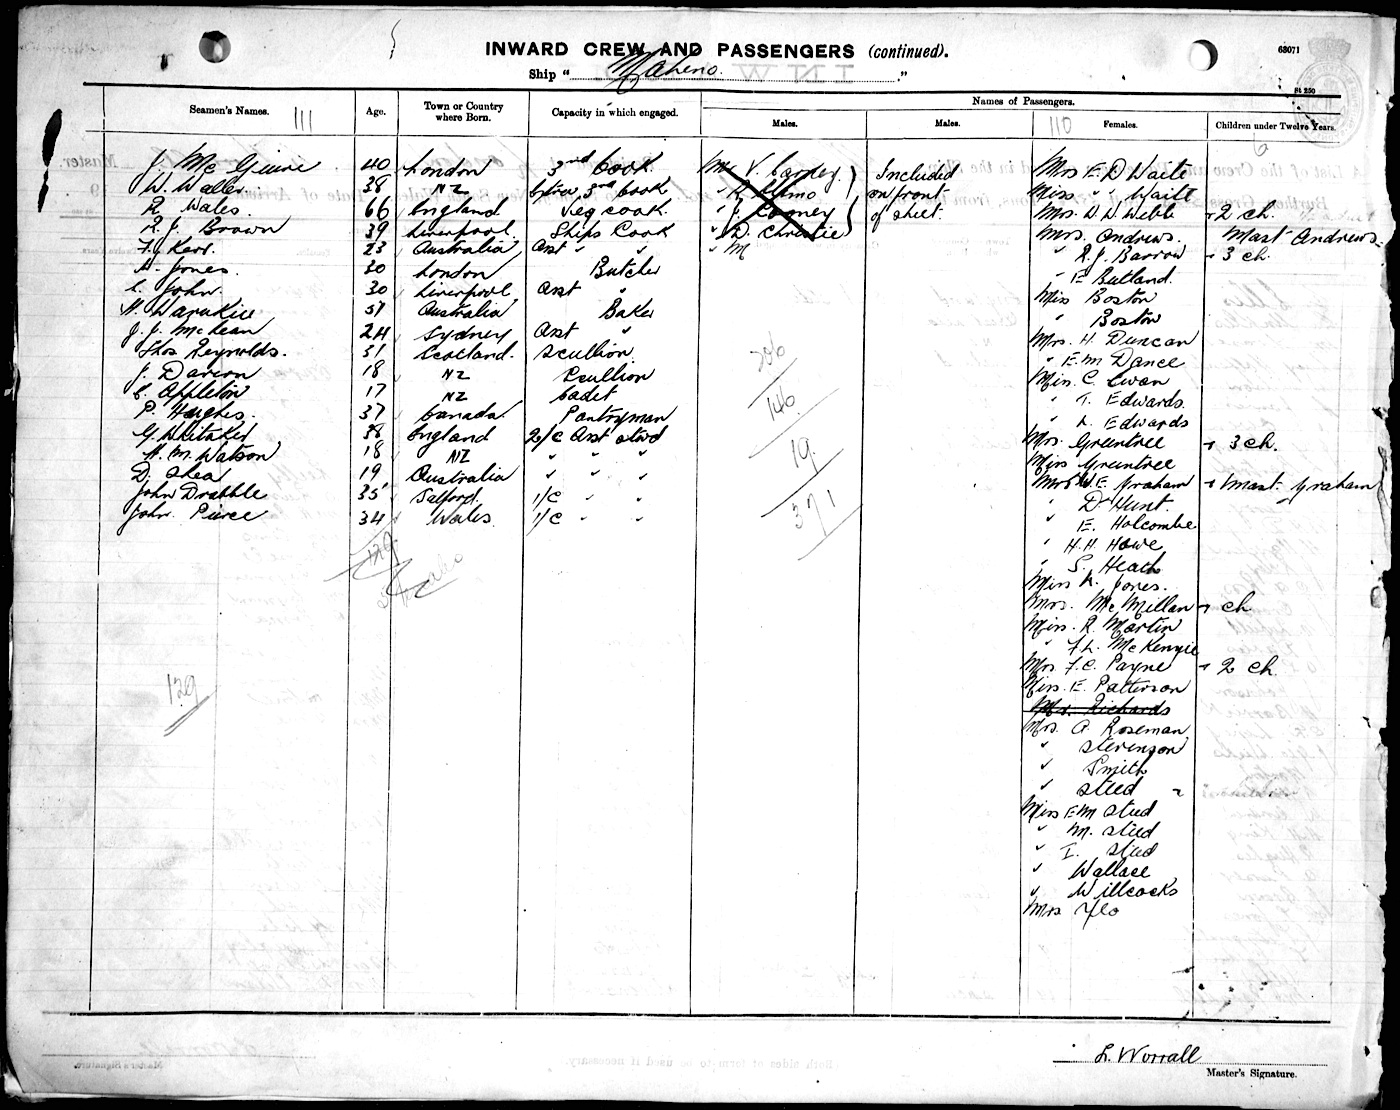 INWARD CREW AND PASSENGERS (continued).
68071
Ship "Maheno."
St 250
Seamen's Names. 111
Age.
Town or Country where Born.
Capacity in which engaged.
Names of Passengers.
Males.
Males.
110 Females.
Children under Twelve Years.
6
J. McGinne 40 London 3rd Cook
W. Wales 38 NZ Extra 3rd Cook
R. Wales. 66 England Veg cook.
R. J. Brown 39 Liverpool. Ships Cook
F. Kerr. 23 Australia Asst " "
H. Jones. 30 London Butcher
C. John. 30 Liverpool Asst "
51 Australia Baker
J. J. McLean 24 Sydney Asst "
Thos Reynolds. 31 Scotland. Scullion
J. 18 NZ Scullion
C. Appleton 17 NZ Cadet
P. Hughes. 37 Canada. Pantryman
G. Whitaker 38 England 2/c Asst stwd
H. M. Watson 18 NZ " " "
D. Shea 19 Australia " " "
John Drabble 35 Salford. 1/c " "
John Pierce 34 Wales 1/c " "
129
129
Mr V.
"
" J.
" D. Christie
" M
Included
on front
of sheet.
206
146
19
371
Mrs E. D. Waite
Miss " " Waite
Mrs. D. D. Webb + 2 ch.
Mrs. Andrews. Mast Andrews
" R. J. Barrow + 3 ch.
" E Butland.
Miss Boston
" Boston
Mrs. H. Duncan
" E. M. Dance
Miss. C. Ewan
" T. Edwards.
" L. Edwards
Mrs. Greentree + 3 ch.
Miss Greentree
Mrs W E. Graham + Mast. Graham
" D. Hunt.
" E. Holcombe
" H. H. Howe
" S. Heath
Miss K. Jones.
Mrs. McMillan + ch
Miss. R. Martin
" F. L. McKenzie
Mrs F. C. Payne + 2 ch
Miss. E. Patterson
Mrs. Richards
Mrs. A. Roseman
" Stevenson
" Smith
" Steed
Miss E M Steed
" M. Steed
" I. Steed
" Wallace
" Willcocks
Mrs Yeo
L. Worrall
Master's Signature.